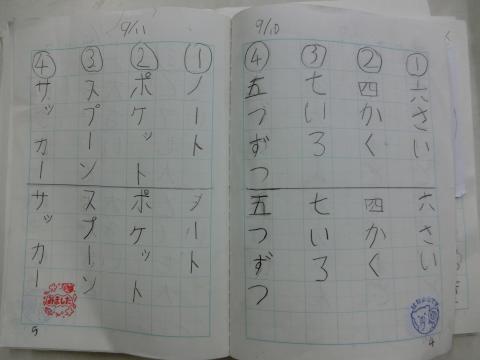 9/10
①六さい 六さい
②四かく 四かく
③七いろ 七いろ
④五つずつ 五つずつ
4
9/11
①ノート ノート
②ポケット ポケット
③スプーン スプーン
④サッカー サッカー
みました
5